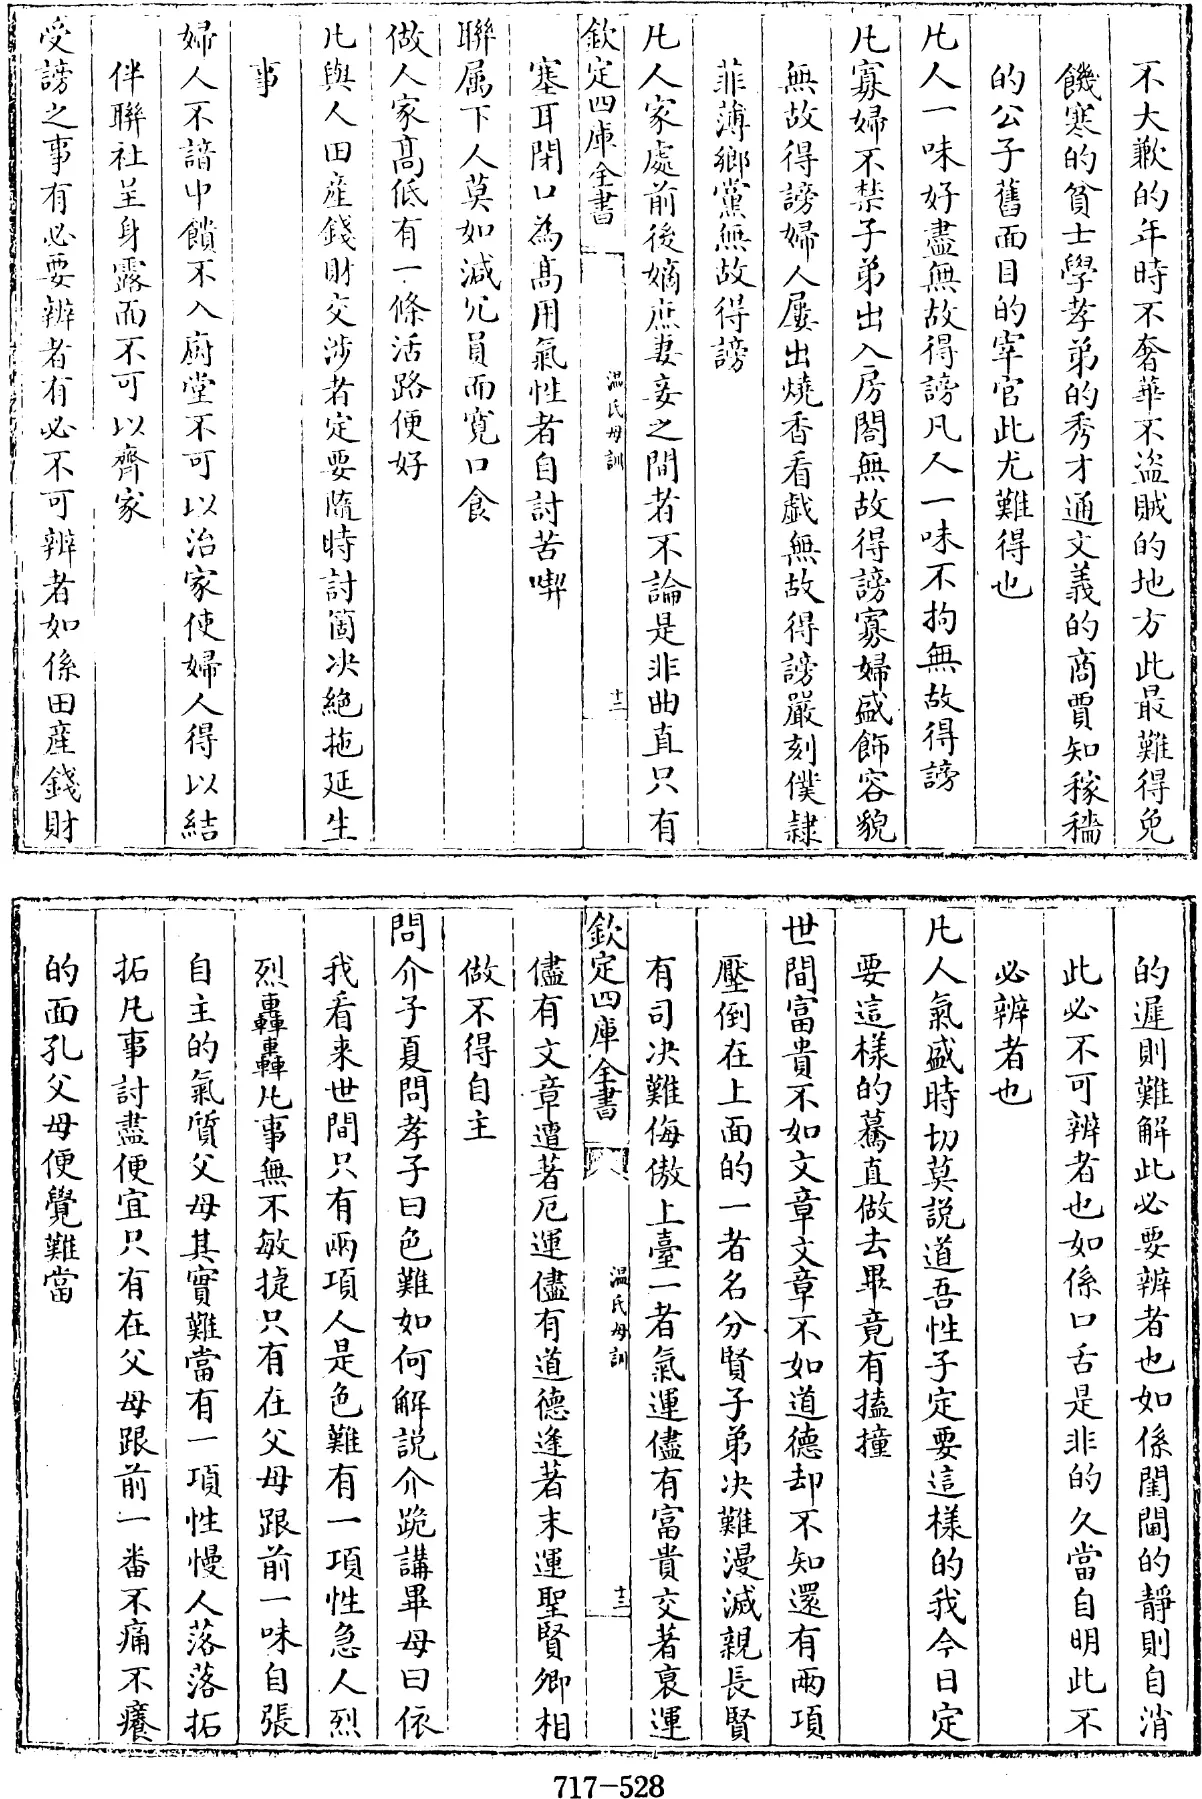 不大歉的年時不奢華不盜賊的地方此最難得免
饑寒的貧士學孝弟的秀才通文義的商賈知稼穡
的公子舊面目的宰官此尤難得也
凡人一味好盡無故得謗凡人一味不拘無故得謗
凡寡婦不禁子弟出入房閣無故得謗寡婦盛飾容貌
無故得謗婦人屢出燒香看戲無故得謗嚴刻僕隸
菲薄鄉黨無故得謗
凡人家處前後嫡庶妻妾之間者不論是非曲直只有
欽定四庫全書
温氏母訓
十二
塞耳閉口為高用氣性者自討苦喫
聯属下人莫如減冗員而寛口食
做人家高低有一條活路便好
凡與人田産錢財交渉者定要隨時討箇决絶拖延生
事
婦人不諳中饋不入厨堂不可以治家使婦人得以結
伴聯社呈身露面不可以齊家
受謗之事有必要辨者有必不可辨者如係田産錢財
的遲則難解此必要辨者也如係閨閫的靜則自消
此必不可辨者也如係口舌是非的久當自明此不
必辨者也
凡人氣盛時切莫説道吾性子定要這樣的我今日定
要這樣的驀直做去畢竟有搕撞
世間富貴不如文章文章不如道德却不知還有兩項
壓倒在上面的一者名分賢子弟决難漫滅親長賢
有司决難侮傲上臺一者氣運儘有富貴交著衰運
欽定四庫全書
温氏母訓
十三
儘有文章遭著厄運儘有道德逢著末運聖賢卿相
做不得自主
問介子夏問孝子曰色難如何解説介跪講畢母曰依
我看来世間只有兩項人是色難有一項性急人烈
烈轟轟凡事無不敏捷只有在父母跟前一味自張
自主的氣質父母其實難當有一項性慢人落落拓
拓凡事討盡便宜只有在父母跟前一番不痛不癢
的面孔父母便覺難當
717-528